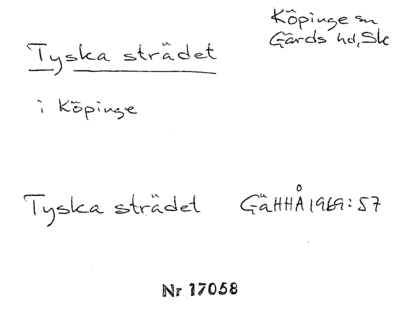 Köpinge sn
Gärds hd, Sk
Tyska strädet
i Köpinge
Tyska strädet GäHHÅ 1969:57
Nr 17058